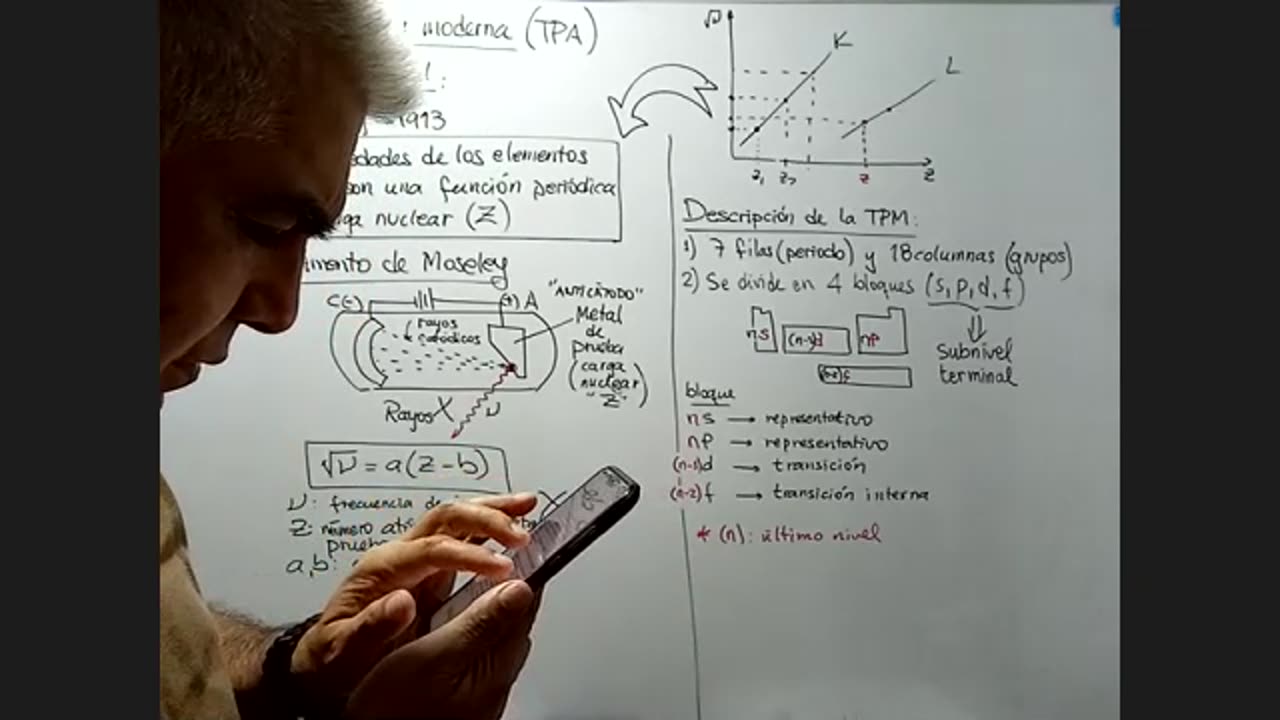 moderna (TPA)
1913
dades de los elementos
son una función periódica
ga nuclear (Z)
imento de Moseley
C(-)
(+) A
"ANTICÁTODO"
Metal
de
prueba
(carga
nuclear
"Z")
rayos
catódicos
Rayos X
ν
√ν = a(Z-b)
ν: frecuencia de
Z: número ató
prueba
a,b:
√ν
K
L
Z₁
Z₂
Z
Z
Descripción de la TPM:
1) 7 filas (periodo) y 18 columnas (grupos)
2) Se divide en 4 bloques (s, p, d, f)
ns
(n-1)d
np
(n-2)f
Subnivel
terminal
bloque
ns → representativo
np → representativo
(n-1)d → transición
(n-2)f → transición interna
* (n): último nivel